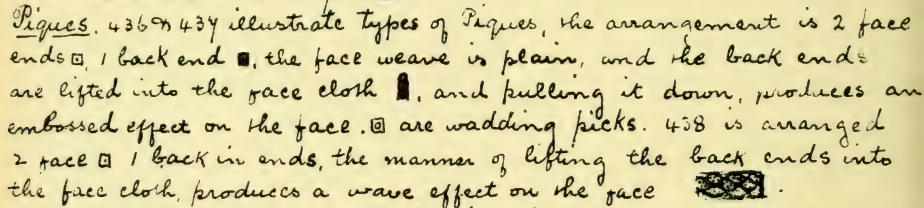 Piques. 436 & 437 illustrate types of Piques, the arrangement is 2 face
ends ⊡, 1 back end ■, the face weave is plain, and the back ends
are lifted into the face cloth ▮, and pulling it down, produces an
embossed effect on the face. ⊡ are wadding picks. 438 is arranged
2 face ⊡ 1 back in ends, the manner of lifting the back ends into
the face cloth, produces a wave effect on the face .